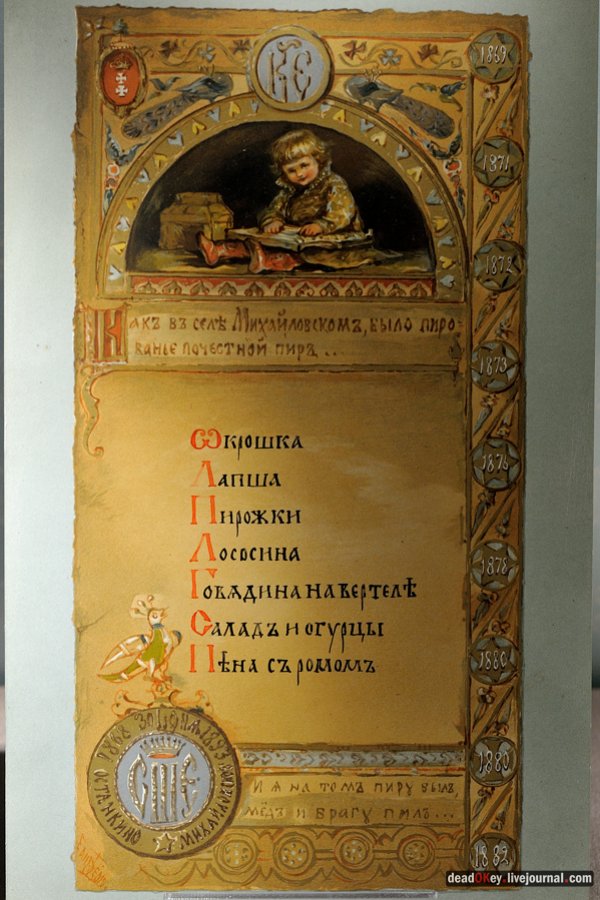 1869
1871
1872
1873
1876
1878
1880
1880
1882
Какъ въ селѣ Михайловскомъ, было пиро-
ванье почестной пиръ..
Ѡкрошка
Лапша
Пирожки
Лососина
Говядина на вертелѣ
Саладъ и огурцы
Пѣна съ ромомъ
1868 30 Іюня 1893
Останкино Михайловское
И я на томъ пиру былъ,
мёдъ и брагу пилъ...
deadOKey.livejournal.com